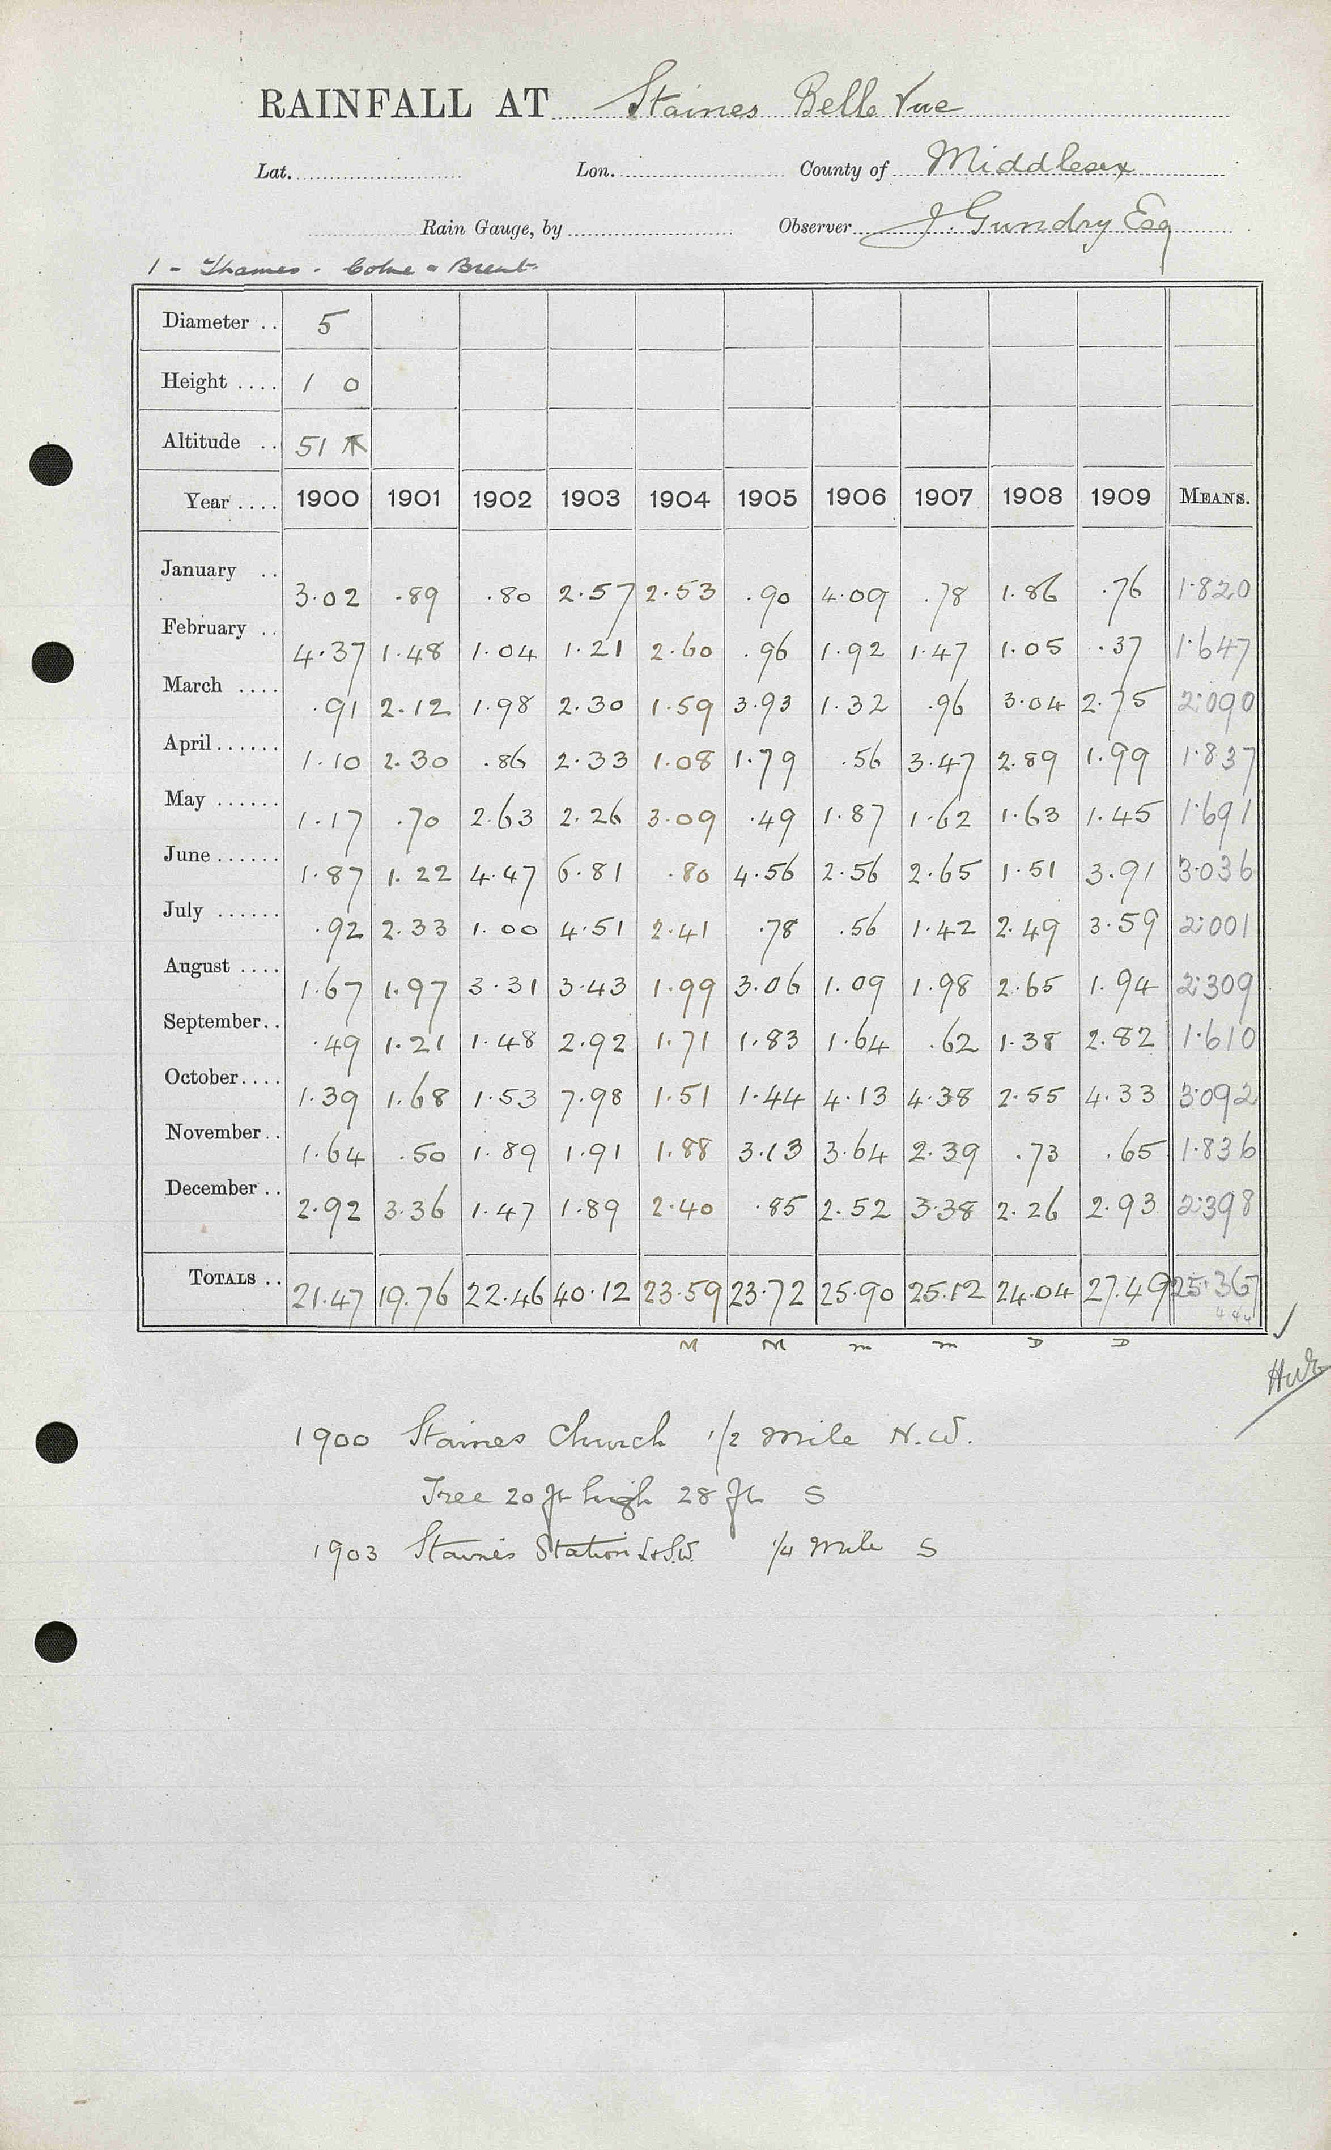 RAINFALL AT Staines Belle Vue
Lat. Lon. County of Middlesex
Rain Gauge, by Observer J. Gundry Esq
1 - Thames - Colne & Brent
Diameter .. 5
Height .... 1 0
Altitude .. 51
Year .... 1900 1901 1902 1903 1904 1905 1906 1907 1908 1909 MEANS.
January .. 3.02 .89 .80 2.57 2.53 .90 4.09 .78 1.86 .76 1.820
February .. 4.37 1.48 1.04 1.21 2.60 .96 1.92 1.47 1.05 .37 1.647
March .... .91 2.12 1.98 2.30 1.59 3.93 1.32 .96 3.04 2.75 2.090
April...... 1.10 2.30 .86 2.33 1.08 1.79 .56 3.47 2.89 1.99 1.837
May ...... 1.17 .70 2.63 2.26 3.09 .49 1.87 1.62 1.63 1.45 1.691
June...... 1.87 1.22 4.47 6.81 .80 4.56 2.56 2.65 1.51 3.91 3.036
July ...... .92 2.33 1.00 4.51 2.41 .78 .56 1.42 2.49 3.59 2.001
August .... 1.67 1.97 3.31 3.43 1.99 3.06 1.09 1.98 2.65 1.94 2.309
September.. .49 1.21 1.48 2.92 1.71 1.83 1.64 .62 1.38 2.82 1.610
October.... 1.39 1.68 1.53 7.98 1.51 1.44 4.13 4.38 2.55 4.33 3.092
November.. 1.64 .50 1.89 1.91 1.88 3.13 3.64 2.39 .73 .65 1.836
December .. 2.92 3.36 1.47 1.89 2.40 .85 2.52 3.38 2.26 2.93 2.398
TOTALS .. 21.47 19.76 22.46 40.12 23.59 23.72 25.90 25.12 24.04 27.49 25.367
M M m m D D
1900 Staines Church 1/2 mile N.W.
Tree 20 ft high 28 ft S
1903 Staines Station L&S.W. 1/4 mile S